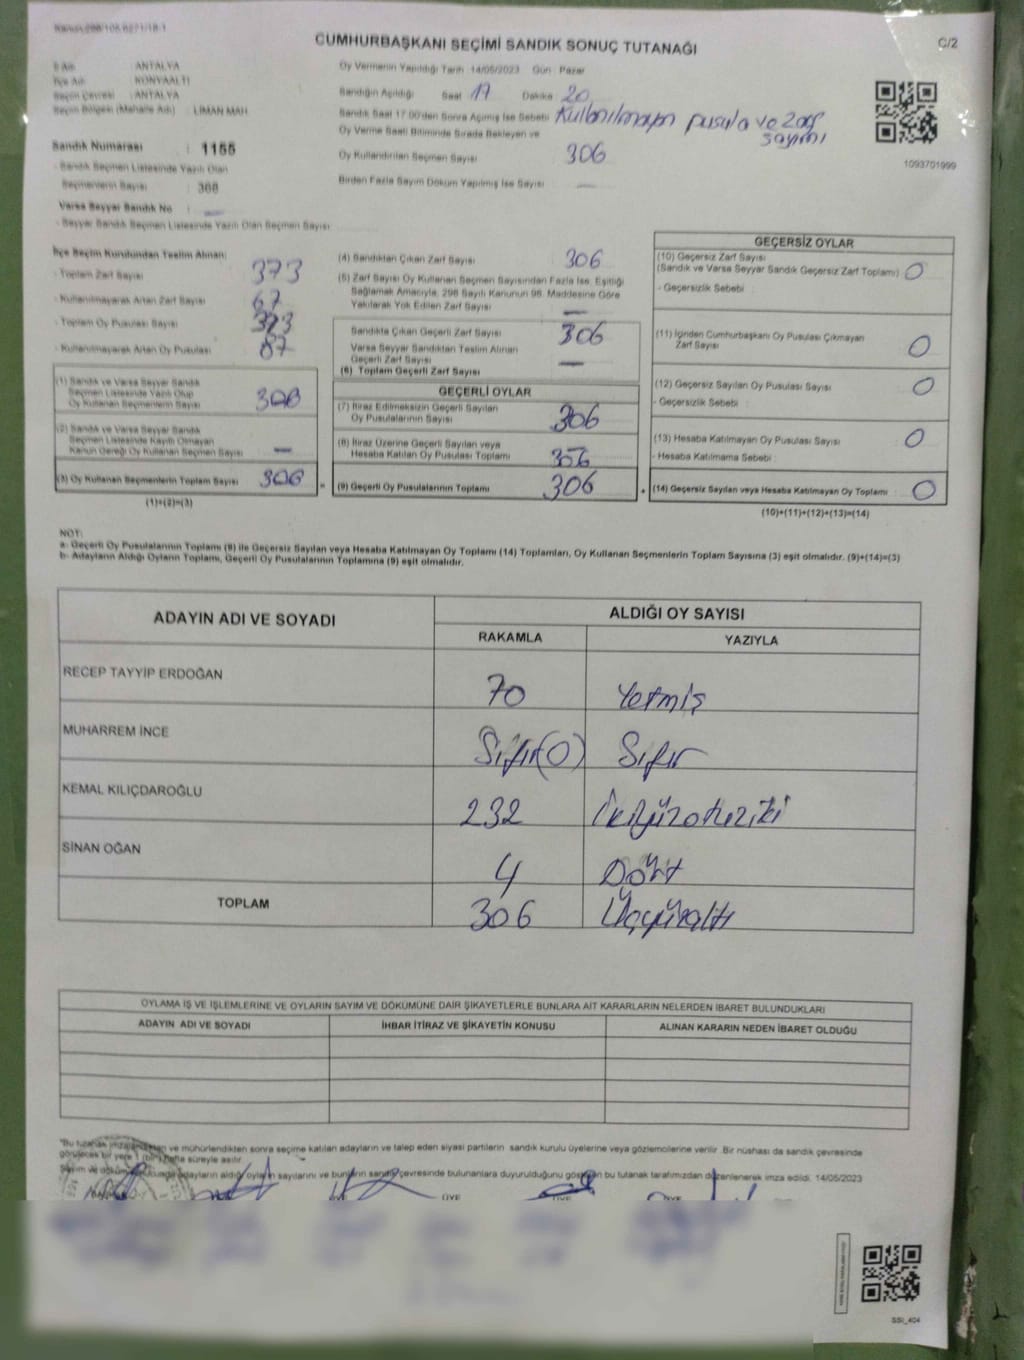 CUMHURBAŞKANI SEÇİMİ SANDIK SONUÇ TUTANAĞI
C/2
İl Adı : ANTALYA
İlçe Adı : KONYAALTI
Seçim Çevresi : ANTALYA
Seçim Bölgesi (Mahalle Adı) : LİMAN MAH.
Sandık Numarası : 1155
- Sandık Seçmen Listesinde Yazılı Olan
Seçmenlerin Sayısı : 368
Varsa Seyyar Sandık No : —
- Seyyar Sandık Seçmen Listesinde Yazılı Olan Seçmen Sayısı:
Oy Vermenin Yapıldığı Tarih :14/05/2023 Gün : Pazar
Sandığın Açıldığı Saat 17 Dakika : 20
Sandık Saat 17.00'den Sonra Açılmış İse Sebebi : Kullanılmayan pusula ve zarf sayımı
Oy Verme Saati Bitiminde Sırada Bekleyen ve
Oy Kullandırılan Seçmen Sayısı : 306
Birden Fazla Sayım Döküm Yapılmış İse Sayısı : —
1093701999
İlçe Seçim Kurulundan Teslim Alınan;
- Toplam Zarf Sayısı : 373
- Kullanılmayarak Artan Zarf Sayısı : 67
- Toplam Oy Pusulası Sayısı : 393
- Kullanılmayarak Artan Oy Pusulası : 87
(1) Sandık ve Varsa Seyyar Sandık
Seçmen Listesinde Yazılı Olup
Oy Kullanan Seçmenlerin Sayısı : 306
(2) Sandık ve Varsa Seyyar Sandık
Seçmen Listesinde Kayıtlı Olmayan
Kanun Gereği Oy Kullanan Seçmen Sayısı : —
(3) Oy Kullanan Seçmenlerin Toplam Sayısı : 306
(1)+(2)=(3)
(4) Sandıktan Çıkan Zarf Sayısı : 306
(5) Zarf Sayısı Oy Kullanan Seçmen Sayısından Fazla İse, Eşitliği
Sağlamak Amacıyla, 298 Sayılı Kanunun 98. Maddesine Göre
Yakılarak Yok Edilen Zarf Sayısı : —
Sandıkta Çıkan Geçerli Zarf Sayısı : 306
Varsa Seyyar Sandıktan Teslim Alınan
Geçerli Zarf Sayısı : —
(6) Toplam Geçerli Zarf Sayısı :
GEÇERLİ OYLAR
(7) İtiraz Edilmeksizin Geçerli Sayılan
Oy Pusulalarının Sayısı : 306
(8) İtiraz Üzerine Geçerli Sayılan veya
Hesaba Katılan Oy Pusulası Toplamı :
(9) Geçerli Oy Pusulalarının Toplamı : 306
GEÇERSİZ OYLAR
(10) Geçersiz Zarf Sayısı
(Sandık ve Varsa Seyyar Sandık Geçersiz Zarf Toplamı) : 0
- Geçersizlik Sebebi :
(11) İçinden Cumhurbaşkanı Oy Pusulası Çıkmayan
Zarf Sayısı : 0
(12) Geçersiz Sayılan Oy Pusulası Sayısı : 0
- Geçersizlik Sebebi :
(13) Hesaba Katılmayan Oy Pusulası Sayısı : 0
- Hesaba Katılmama Sebebi :
(14) Geçersiz Sayılan veya Hesaba Katılmayan Oy Toplamı : 0
(10)+(11)+(12)+(13)=(14)
NOT:
a- Geçerli Oy Pusulalarının Toplamı (9) ile Geçersiz Sayılan veya Hesaba Katılmayan Oy Toplamı (14) Toplamları, Oy Kullanan Seçmenlerin Toplam Sayısına (3) eşit olmalıdır. (9)+(14)=(3)
b- Adayların Aldığı Oyların Toplamı, Geçerli Oy Pusulalarının Toplamına (9) eşit olmalıdır.
ADAYIN ADI VE SOYADI
ALDIĞI OY SAYISI
RAKAMLA YAZIYLA
RECEP TAYYİP ERDOĞAN 70 Yetmiş
MUHARREM İNCE Sıfır(0) Sıfır
KEMAL KILIÇDAROĞLU 232 İkiyüzotuziki
SİNAN OĞAN 4 Dört
TOPLAM 306 Üçyüzaltı
OYLAMA İŞ VE İŞLEMLERİNE VE OYLARIN SAYIM VE DÖKÜMÜNE DAİR ŞİKAYETLERLE BUNLARA AİT KARARLARIN NELERDEN İBARET BULUNDUKLARI
ADAYIN ADI VE SOYADI İHBAR İTİRAZ VE ŞİKAYETİN KONUSU ALINAN KARARIN NEDEN İBARET OLDUĞU
"Bu tutanak imzalandıktan ve mühürlendikten sonra seçime katılan adayların ve talep eden siyasi partilerin sandık kurulu üyelerine veya gözlemcilerine verilir. Bir nüshası da sandık çevresinde
görülecek bir yere 1 (bir) hafta süreyle asılır.
Sayım ve dökümü sonucunda adayların aldığı oyların sayılarını ve bunların sandık çevresinde bulunanlara duyurulduğunu gösteren bu tutanak tarafımızdan düzenlenerek imza edildi. 14/05/2023
ÜYE ÜYE ÜYE
SSI_404